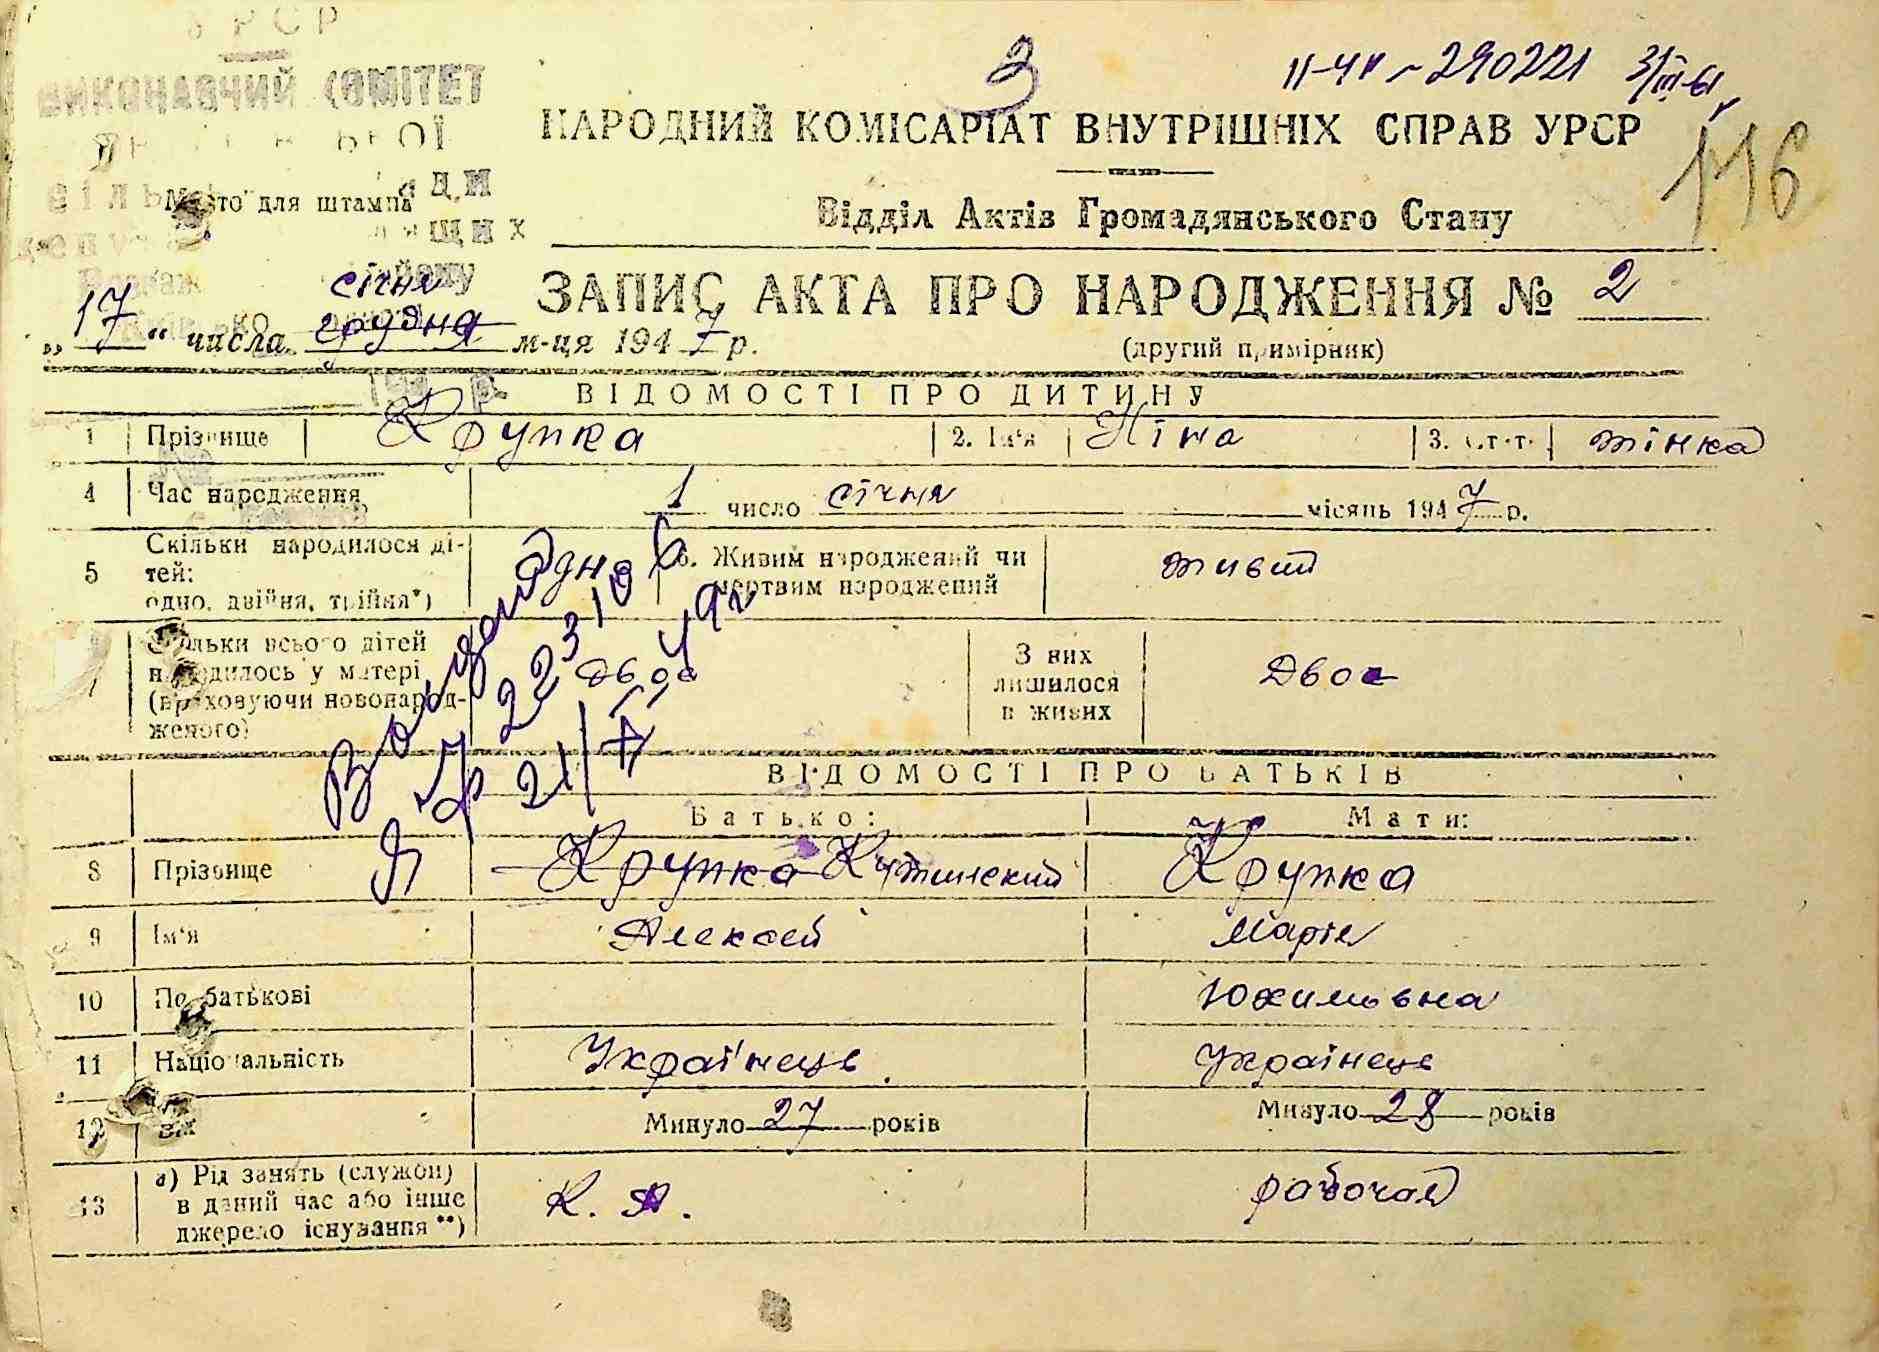 УРСР
ВИКОНАВЧИЙ КОМІТЕТ
3
II-ЧК 290221 3/III-61
НАРОДНИЙ КОМІСАРІАТ ВНУТРІШНІХ СПРАВ УРСР
116
Місто для штампа
Відділ Актів Громадянського Стану
ЗАПИС АКТА ПРО НАРОДЖЕННЯ № 2
(другий примірник)
січня
„17“ числа грудня м-ця 1947 р.
ВІДОМОСТІ ПРО ДИТИНУ
1 Прізвище Крупка 2. Ім'я Ніна 3. Стать жінка
4 Час народження 1 число січня місяць 1947 р.
5 Скільки народилося дітей: одно, двійня, трійня*) Одно 6. Живим народжений чи мертвим народжений живий
7 Скільки всього дітей народилось у матері (враховуючи новонародженого) Двое З них лишилося в живих Двое
ЯЧ 223106
21/X 49г
ВІДОМОСТІ ПРО БАТЬКІВ
Батько: Мати:
8 Прізвище Крупка Крупка
9 Ім'я Алексей Марія
10 По батькові Юхимовна
11 Національність Українець Українець
12 Вік Минуло 27 років Минуло 28 років
13 а) Рід занять (служби) в даний час або інше джерело існування**) К. А. рабочая